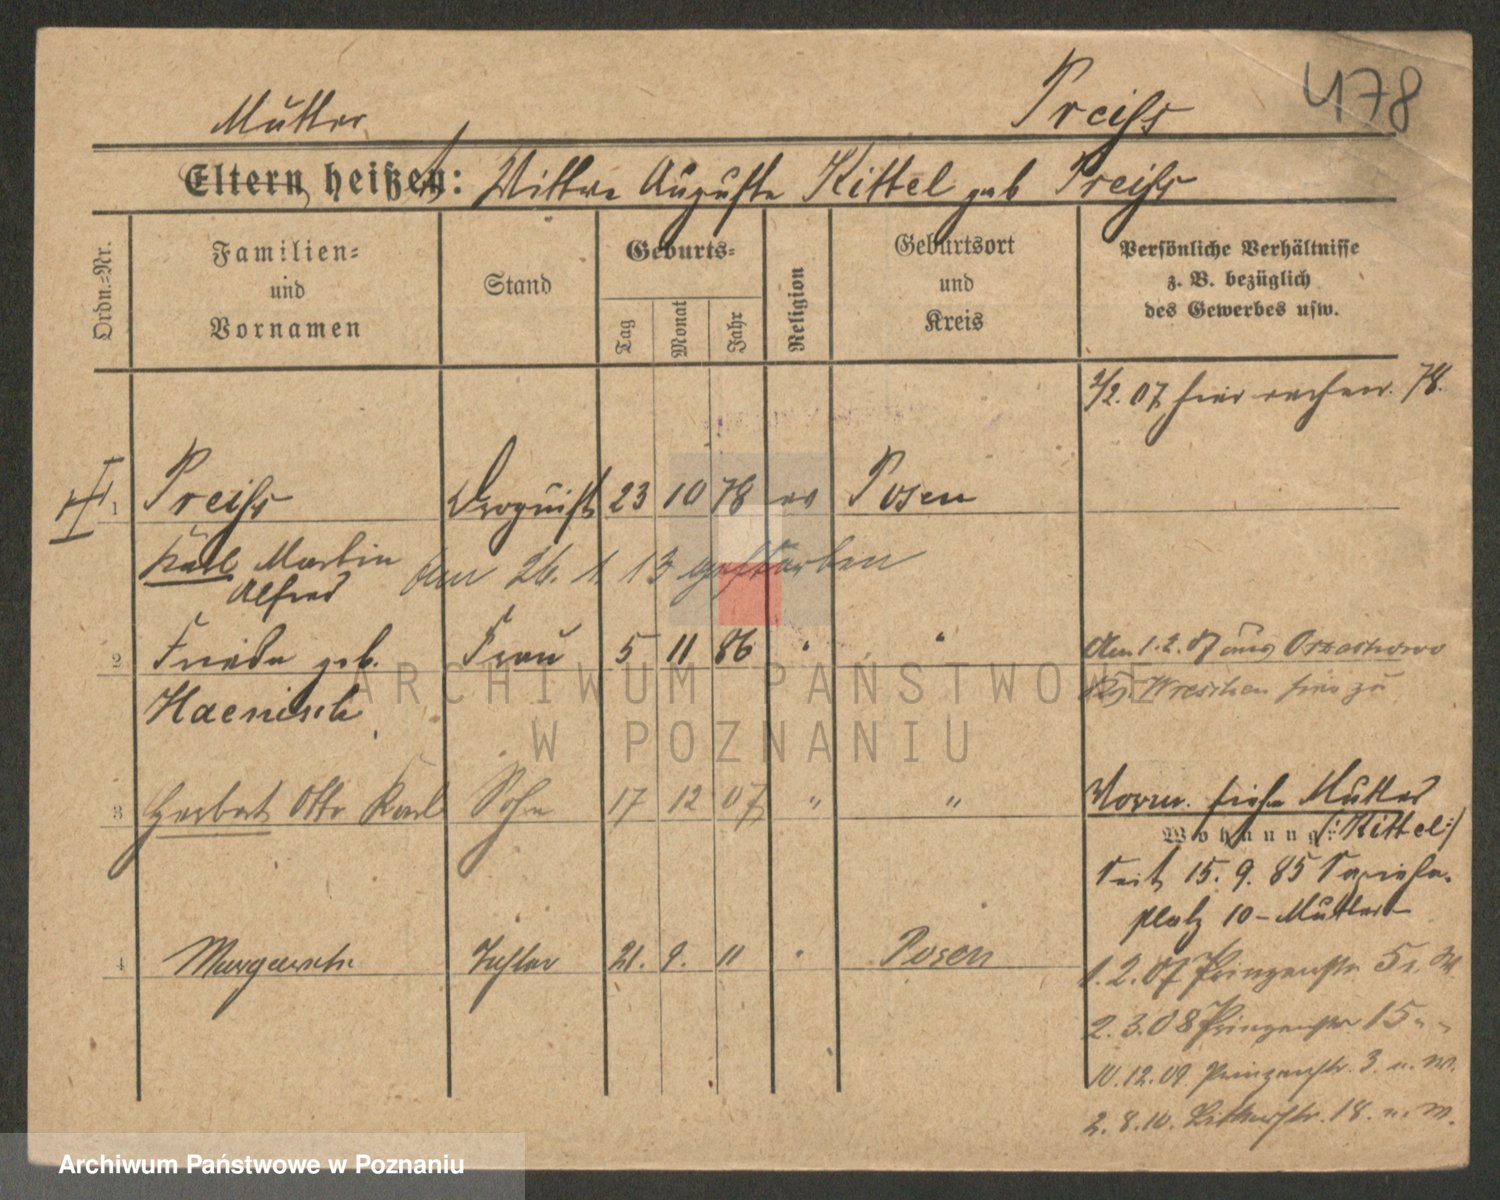 478
Mutter Preiss
Eltern heißen: Wittwe Auguste Kittel geb Preiss
Ordn.=Nr.
Familien=
und
Vornamen
Stand
Geburts=
Tag
Monat
Jahr
Religion
Geburtsort
und
Kreis
Persönliche Verhältnisse
z. B. bezüglich
des Gewerbes usw.
1/2. 07 hier 78.
1 Preiss Droguist 23 10 78 ev Posen
Karl Martin
Alfred
am 26. 1 13 gestorben
2 Frieda geb. Frau 5 11 86 " "
Haenisch
am 1. 2. 07 aus
Wreschen hierzu
3 Herbert Otto Karl Sohn 17 12 07 " "
Vorm. siehe Mutter
Wohnung: /: Kittel :/
seit 15. 9. 85 Sapieha-
platz 10 - Mutter -
4 Margarete Tochter 21. 9. 11 " Posen
1. 2. 07 Prinzenstr 5 u. M.
2. 3. 08 Prinzenstr 15 " "
10. 12. 09. Prinzenstr. 3 u. M.
2. 8. 10. 18. u. M.
ARCHIWUM PAŃSTWOWE
W POZNANIU
Archiwum Państwowe w Poznaniu